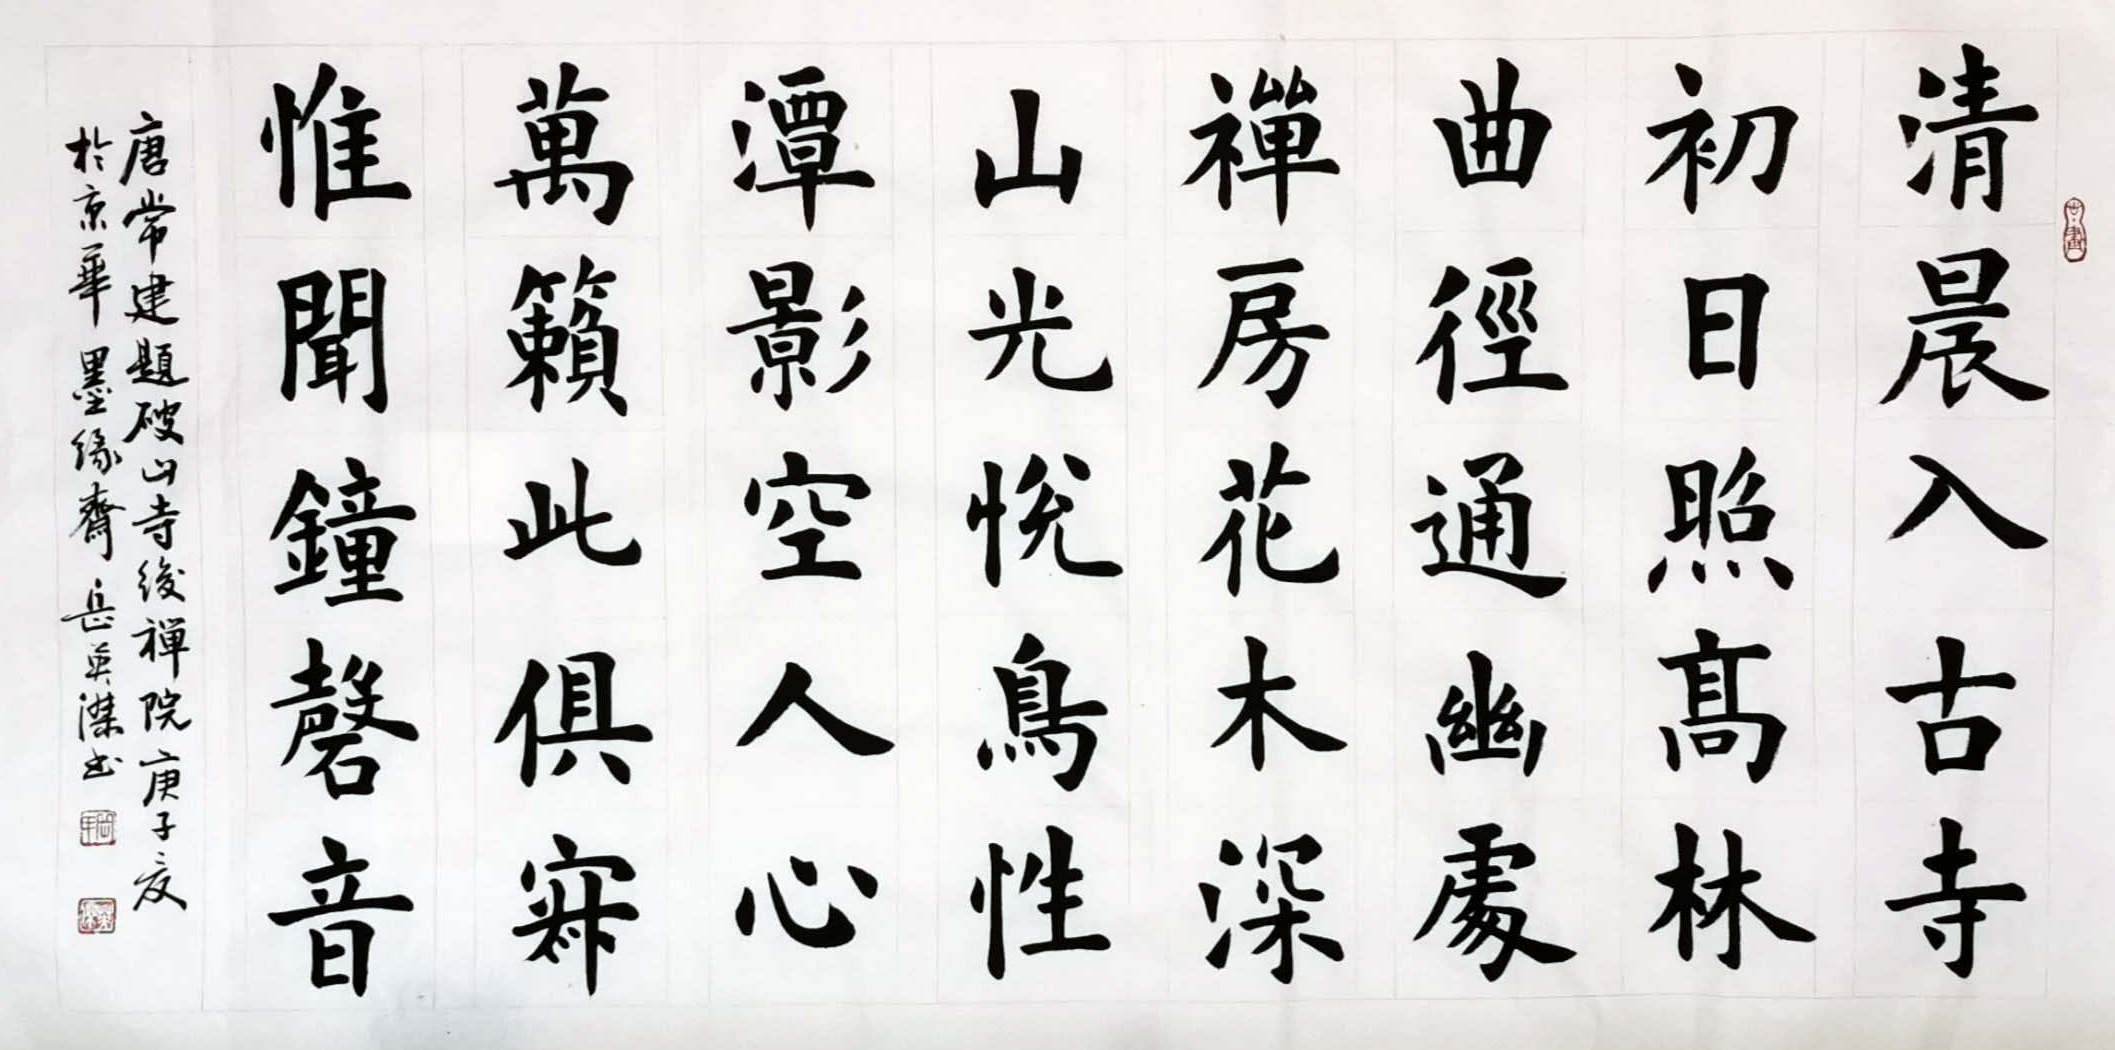 清晨入古寺
初日照髙林
曲徑通幽處
禪房花木深
山光悅鳥性
潭影空人心
萬籟此俱寂
惟聞鐘磬音
唐常建題破山寺後禪院庚子夏
於京華墨緣齋岳英傑书